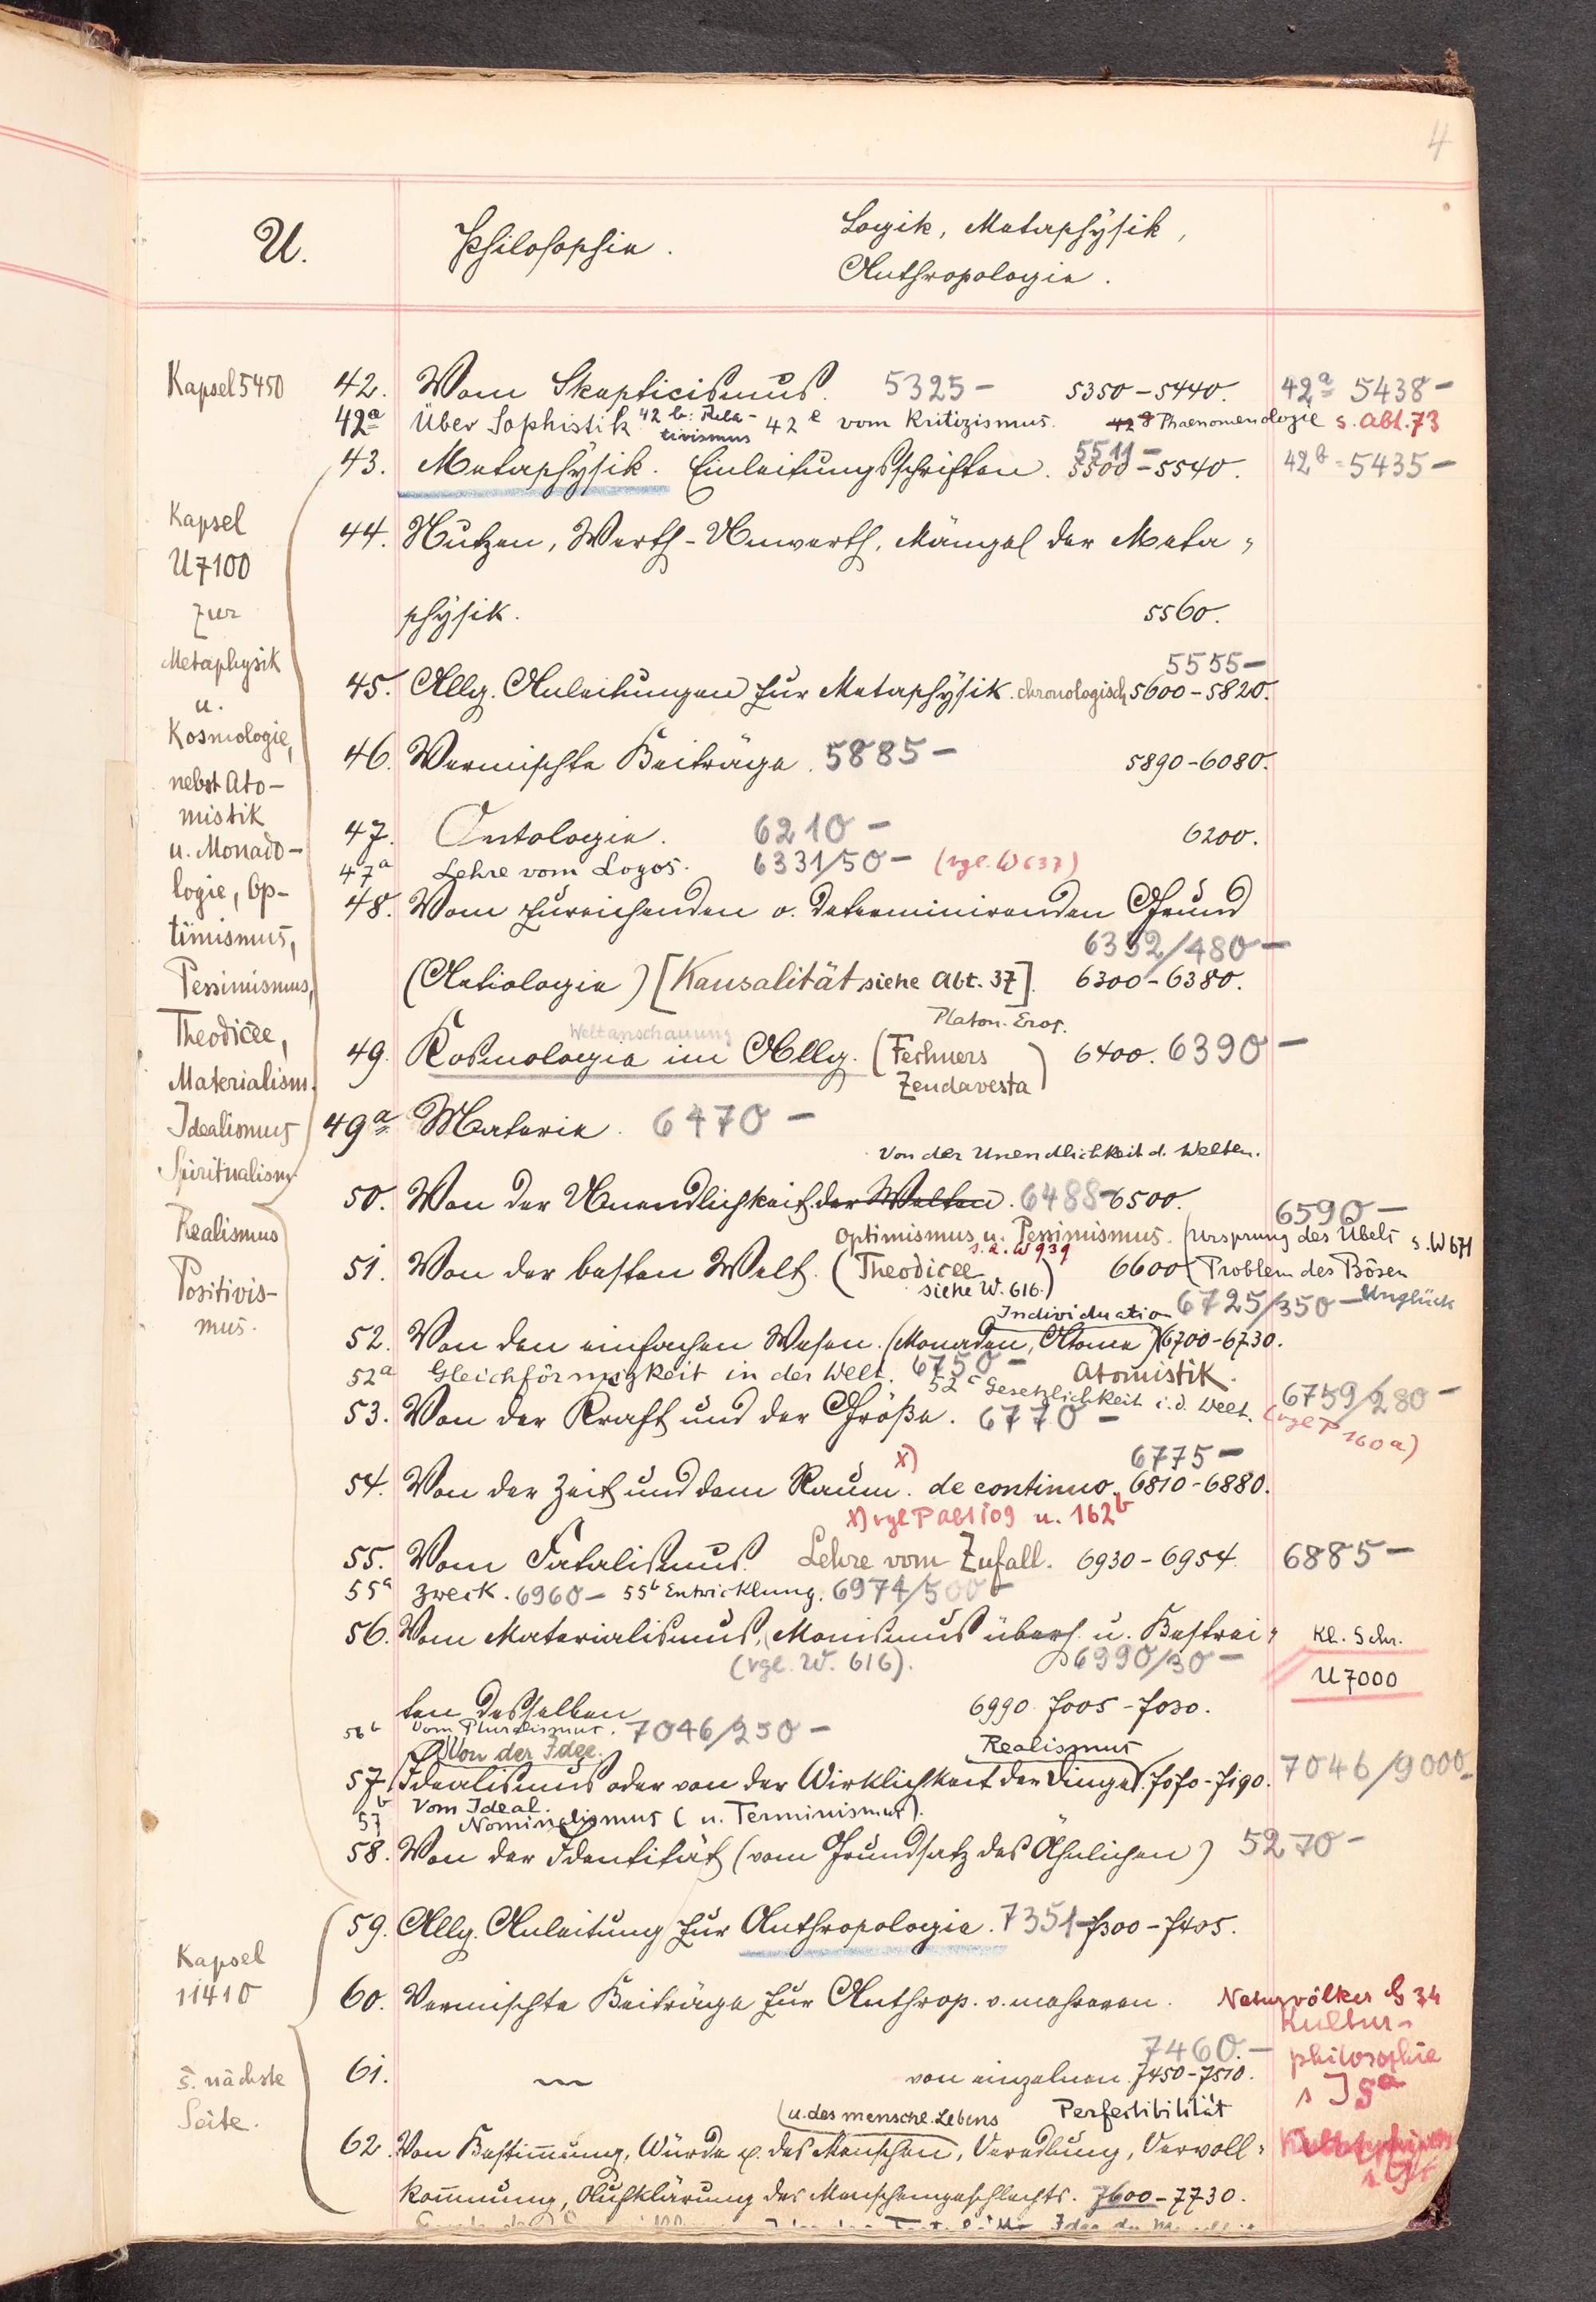 4
U. Philosophie. Logik, Metaphysik,
Anthropologie.
Kapsel 5450 42. Vom Skepticismus. 5325 – 5350 – 5440. 42a 5438 –
42a Über Sophistik 42 b: Rela-
tivismus 42 e vom Kritizismus. Phaenomenologie s. Abt. 73
43. Metaphysik. Einleitungsschriften. 5511 –
5500 – 5540. 42b = 5435 –
Kapsel
U 7100
zur
Metaphysik
u.
Kosmologie,
nebst Ato-
mistik
u. Monado-
logie, Op-
timismus,
Pessimismus,
Theodicée,
Materialism.
Idealismus
Spiritualism.
Realismus
Positivis-
mus.
44. Nutzen, Werth-Unwerth, Mängel der Meta-
physik. 5560.
5555 –
45. Allg. Anleitungen zur Metaphysik. chronologisch 5600 – 5820.
46. Vermischte Beiträge. 5885 – 5890 – 6080.
47. Ontologie. 6210 – 6200.
47a Lehre vom Logos. 6331/50 – (vgl. W 637)
48. Vom zureichenden o. determinirenden Grund
6352/480 –
(Aetiologie) [Kausalität siehe Abt. 37]. 6300 – 6380.
Platon. Eros.
Weltanschauung
49. Kosmologie im Allg. (Fechners
Zendavesta) 6400. 6390 –
49a Materie. 6470 –
Von der Unendlichkeit d. Welten.
50. Von der Unendlichkeit der Welten. 6488 – 6500.
6590 –
Optimismus u. Pessimismus. (Ursprung des Übels s. W 671
s. a. W 939
51. Von der besten Welt. (Theodicee
siehe W. 616.) 6600 (Problem des Bösen
Unglück
Individuation 6725/350 –
52. Von den einfachen Wesen. (Monaden, Atome) 6700 – 6730.
52a Gleichförmigkeit in der Welt. 6750 – Atomistik.
52c Gesetzlichkeit i. d. Welt. 6759/280 –
(vgl P 160a)
53. Von der Kraft und der Größe. 6770 –
6775 –
54. Von der Zeit und dem Raum. x) de continuo. 6810 – 6880.
x) vgl P Abt 109 u. 162b
55. Vom Fatalismus. Lehre vom Zufall. 6930 – 6954. 6885 –
55a Zweck. 6960 – 55b Entwicklung. 6974/500 –
56. Vom Materialismus, (Monismus überh. u. Bestrei- Kl. Schr.
(vgl. W. 616). 6990/30 – U 7000
ten desselben 6990 7005 – 7030.
56b Vom Pluralismus. 7046/250 –
Von der Idee. Realismus
57. Idealismus oder von der Wirklichkeit der Dinge). 7070 – 7190. 7046/9000 –
Vom Ideal.
57b Nominalismus (u. Terminismus).
58. Von der Identität (vom Grundsatz des Ähnlichen) 5270 –
59. Allg. Anleitung zur Anthropologie. 7351 – 7300 – 7405.
Kapsel
11410
60. Vermischte Beiträge zur Anthrop. v. mehreren. Naturvölker G 34
Kultur-
philosophie
s J 5a
7460. –
61. — von einzelnen. 7450 – 7510.
s. nächste
Seite.
(u. des menschl. Lebens Perfectibilität
62. Von Bestimmung, Würde p. des Menschen, Veredlung, Vervoll-
kommnung, Aufklärung des Menschengeschlechts. 7600 – 7730.